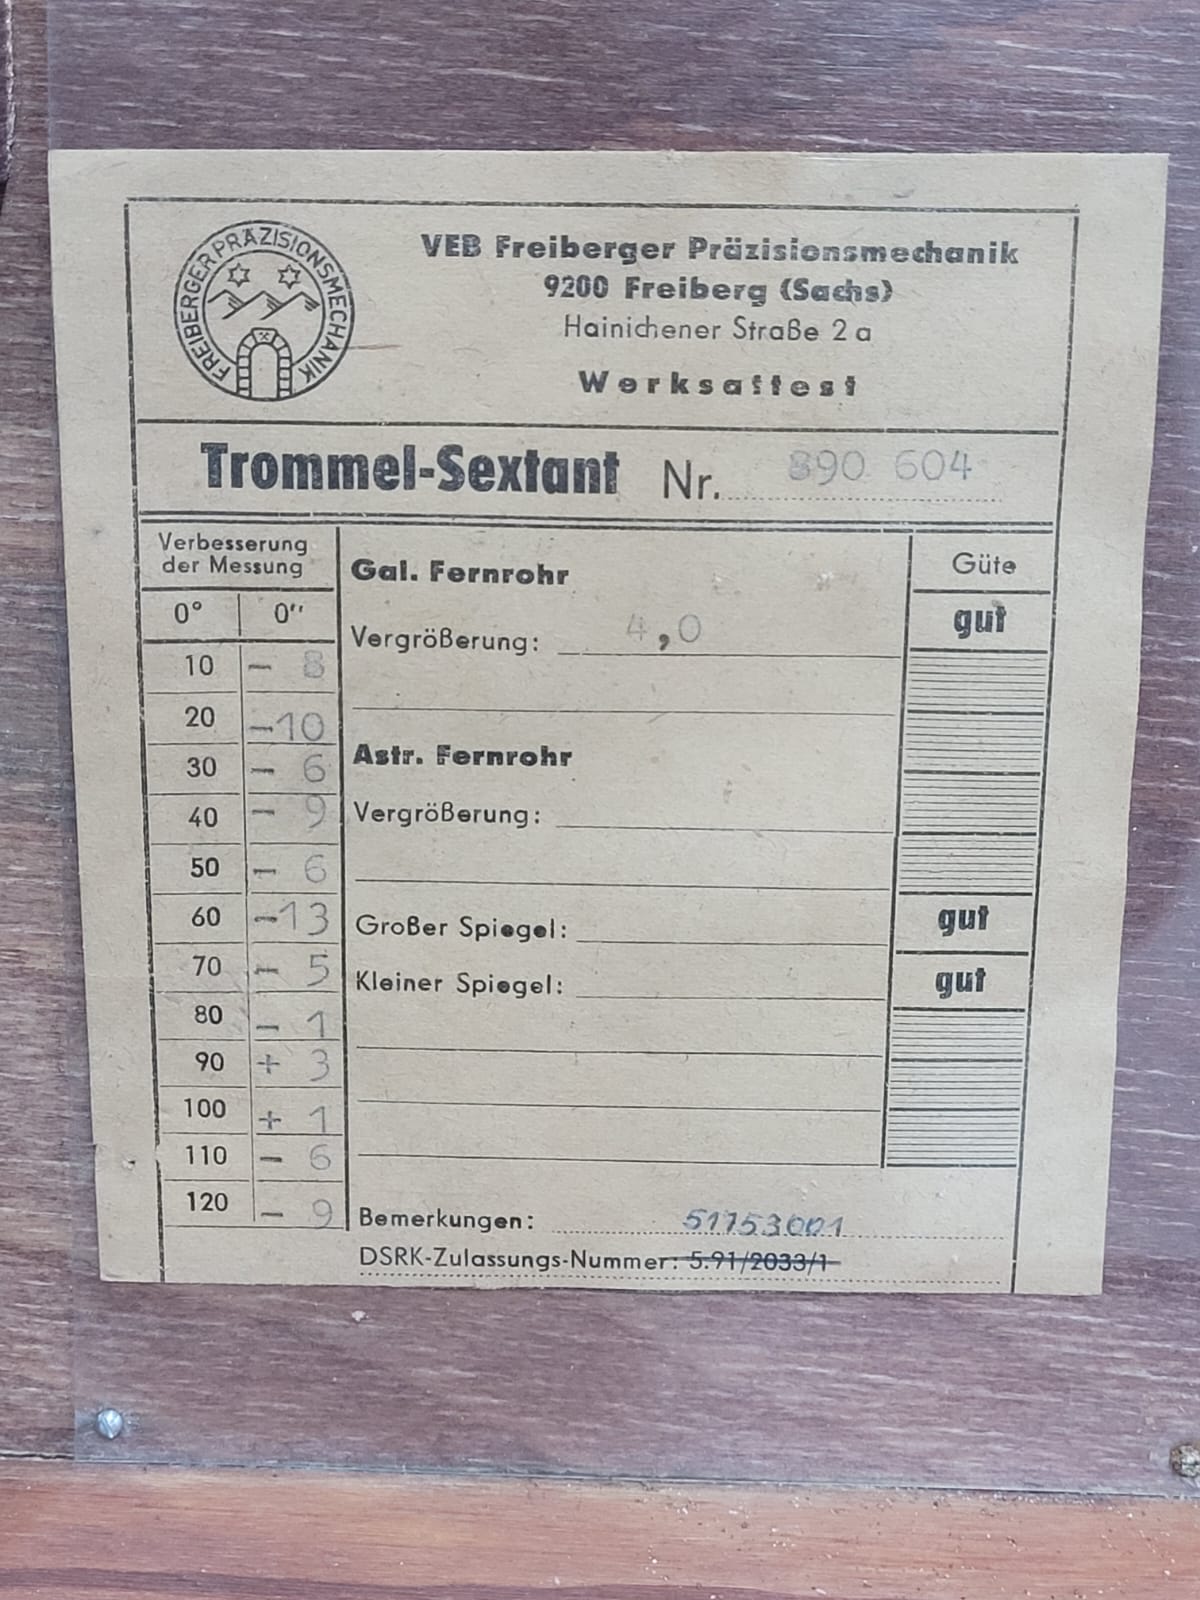 FREIBERGER PRÄZISIONSMECHANIK
VEB Freiberger Präzisionsmechanik
9200 Freiberg (Sachs)
Hainichener Straße 2 a
Werksattest
Trommel-Sextant Nr. 890 604
Verbesserung
der Messung
0° 0''
10 – 8
20 –10
30 – 6
40 – 9
50 – 6
60 –13
70 – 5
80 – 1
90 + 3
100 + 1
110 – 6
120 – 9
Gal. Fernrohr
Vergrößerung: 4,0
Astr. Fernrohr
Vergrößerung:
Großer Spiegel:
Kleiner Spiegel:
Güte
gut
gut
gut
Bemerkungen: 51753001
DSRK-Zulassungs-Nummer: 5.91/2033/1